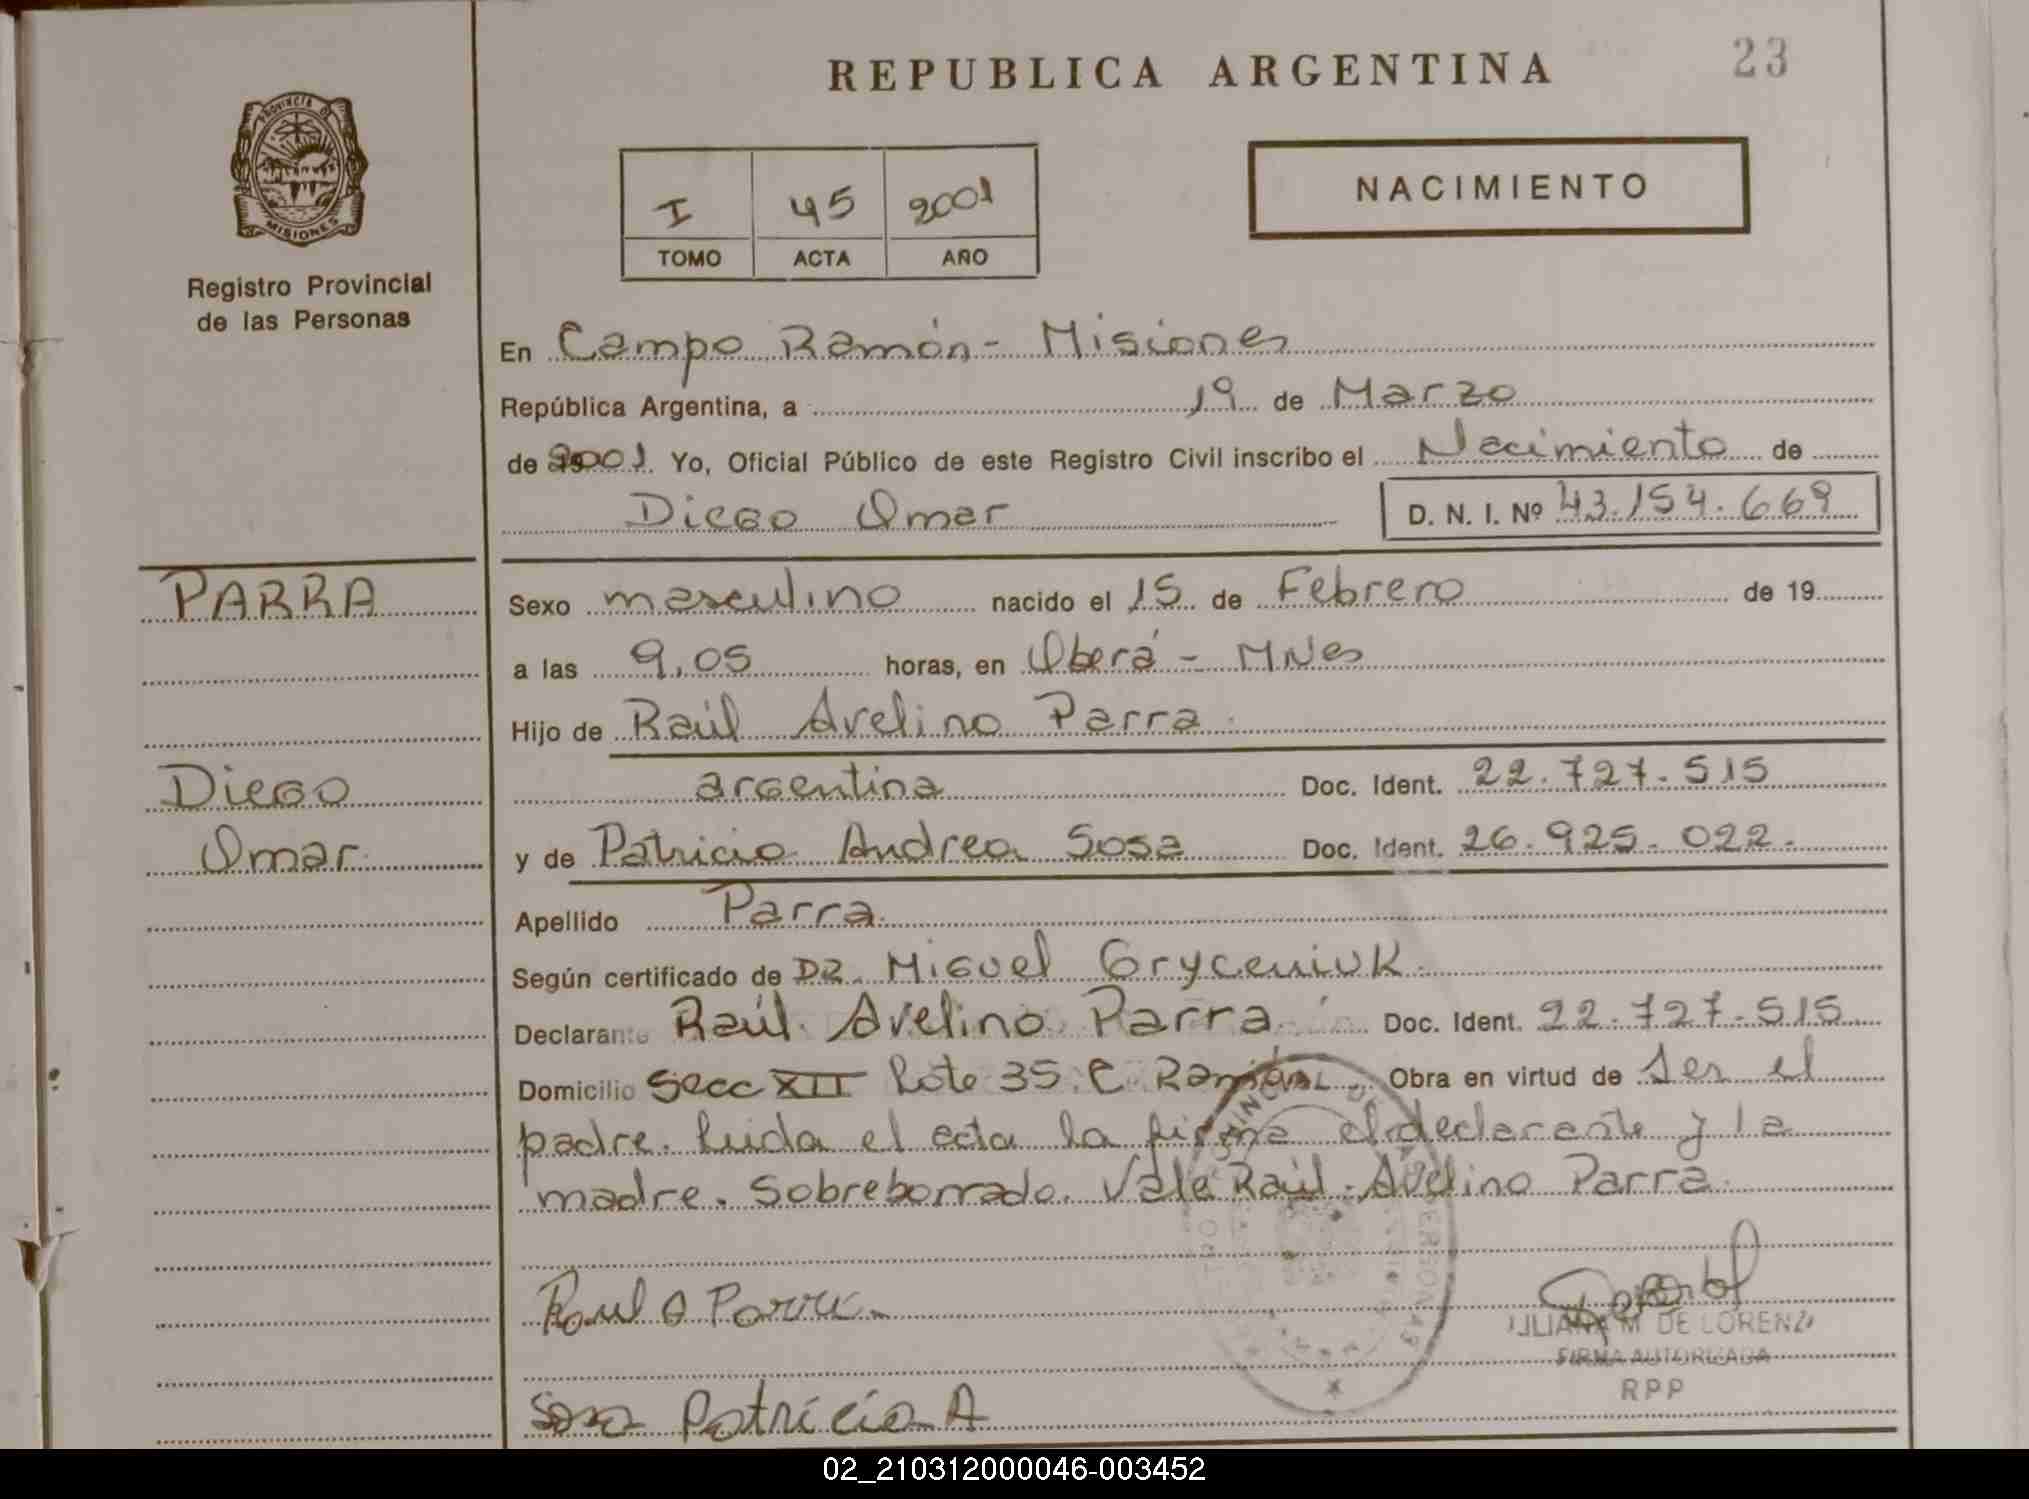 REPUBLICA ARGENTINA
23
PROVINCIA DE
MISIONES
Registro Provincial
de las Personas
I 45 2001
TOMO ACTA AÑO
NACIMIENTO
En Campo Ramón - Misiones
República Argentina, a 19 de Marzo
de 2001 Yo, Oficial Público de este Registro Civil inscribo el Nacimiento de
Diego Omar D. N. I. Nº 43.154.669
PARRA
Diego
Omar
Sexo masculino nacido el 15 de Febrero de 19
a las 9,05 horas, en Oberá - MNes
Hijo de Raúl Avelino Parra
argentina Doc. Ident. 22.727.515
y de Patricia Andrea Sosa Doc. Ident. 26.925.022.
Apellido Parra
Según certificado de DR. Miguel Gryceniuk
Declarante Raúl Avelino Parra Doc. Ident. 22.727.515
Domicilio Secc XII lote 35 C. Ramón Obra en virtud de ser el
padre. Leida el acta la firma el declarante y la
madre. Sobreborrado. Vale Raúl Avelino Parra
Raul A Parra
DE LORENZI
FIRMA AUTORIZADA
RPP
Sosa Patricia A
02_210312000046-003452